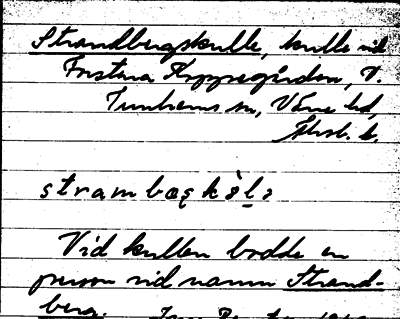 Strandbergskulle, kulle vid
Fristena Kyrkogården, V.
Tunhems sn, Väne hd,
Älvsb. l.
strambæskəlɘ
Vid kullen bodde en
person vid namn Strand-
berg.